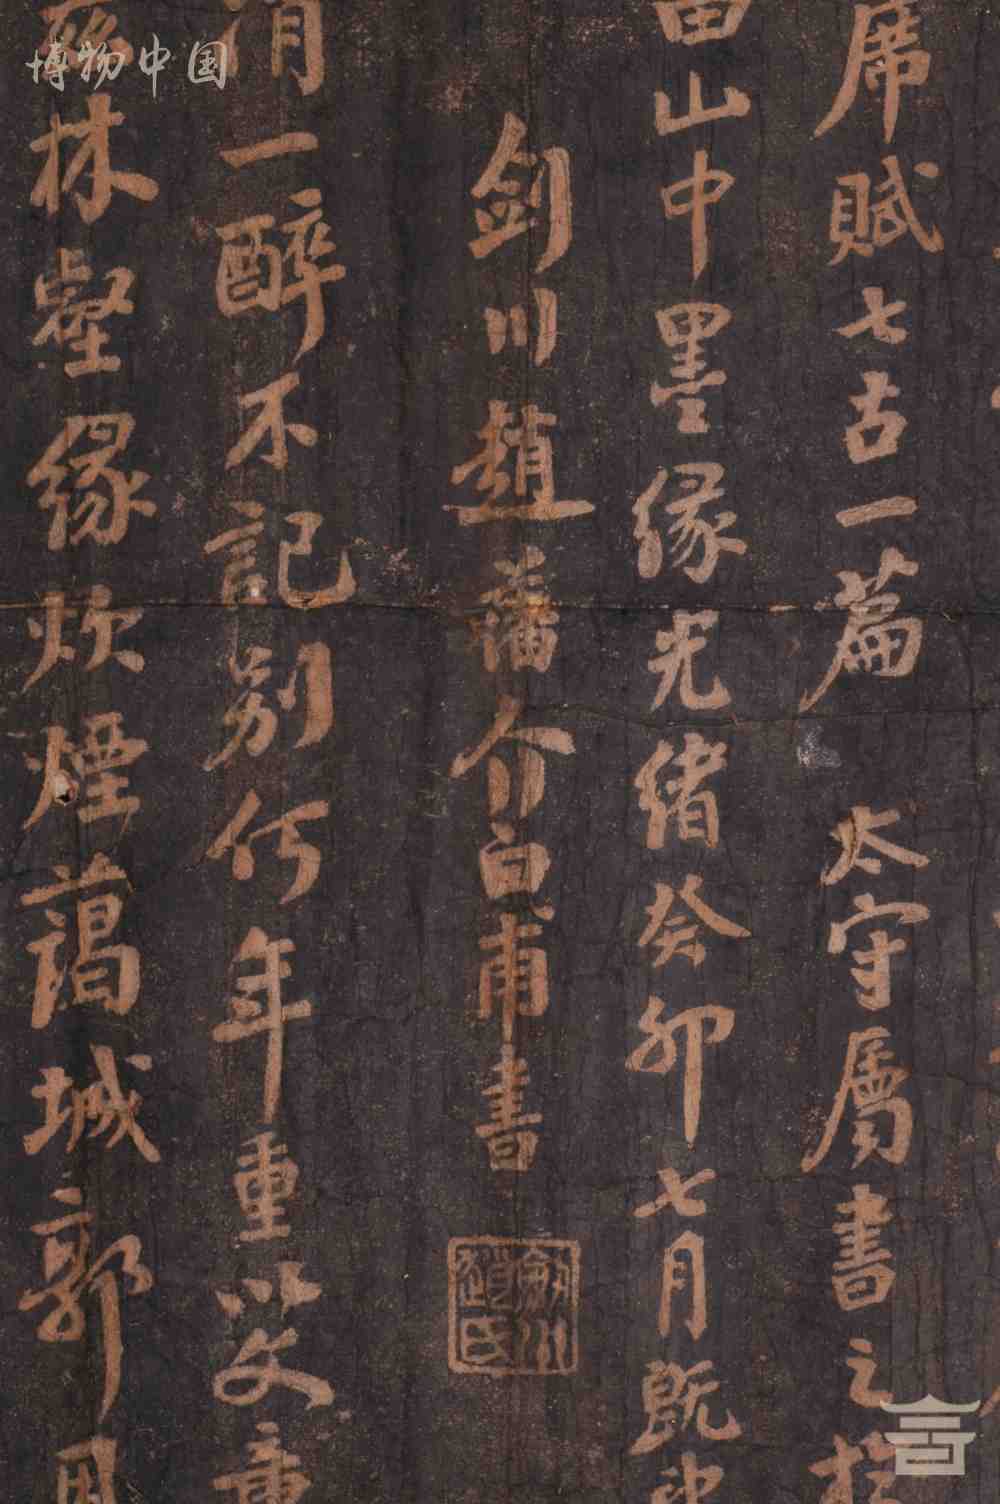 博物中国
席賦七古一篇 太守屬書之
山中墨緣光緒癸卯七月既
劍川趙藩介白甫書
劍川趙氏
一醉不記別何年重以文章
林壑緣炊煙藹城郭